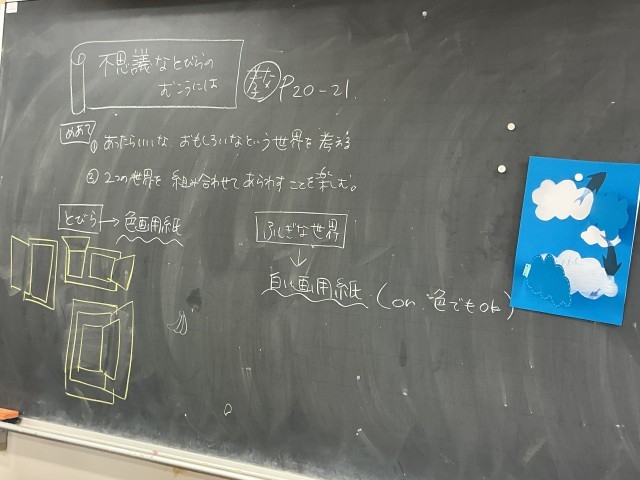 不思議なとびらの
むこうには
P20-21.
めあて
① あったらいいな、おもしろいなという世界を考える
② 2つの世界を組み合わせてあらわすことを楽しむ。
とびら→色画用紙
ふしぎな世界
↓
白い画用紙 (or 色でもOK)